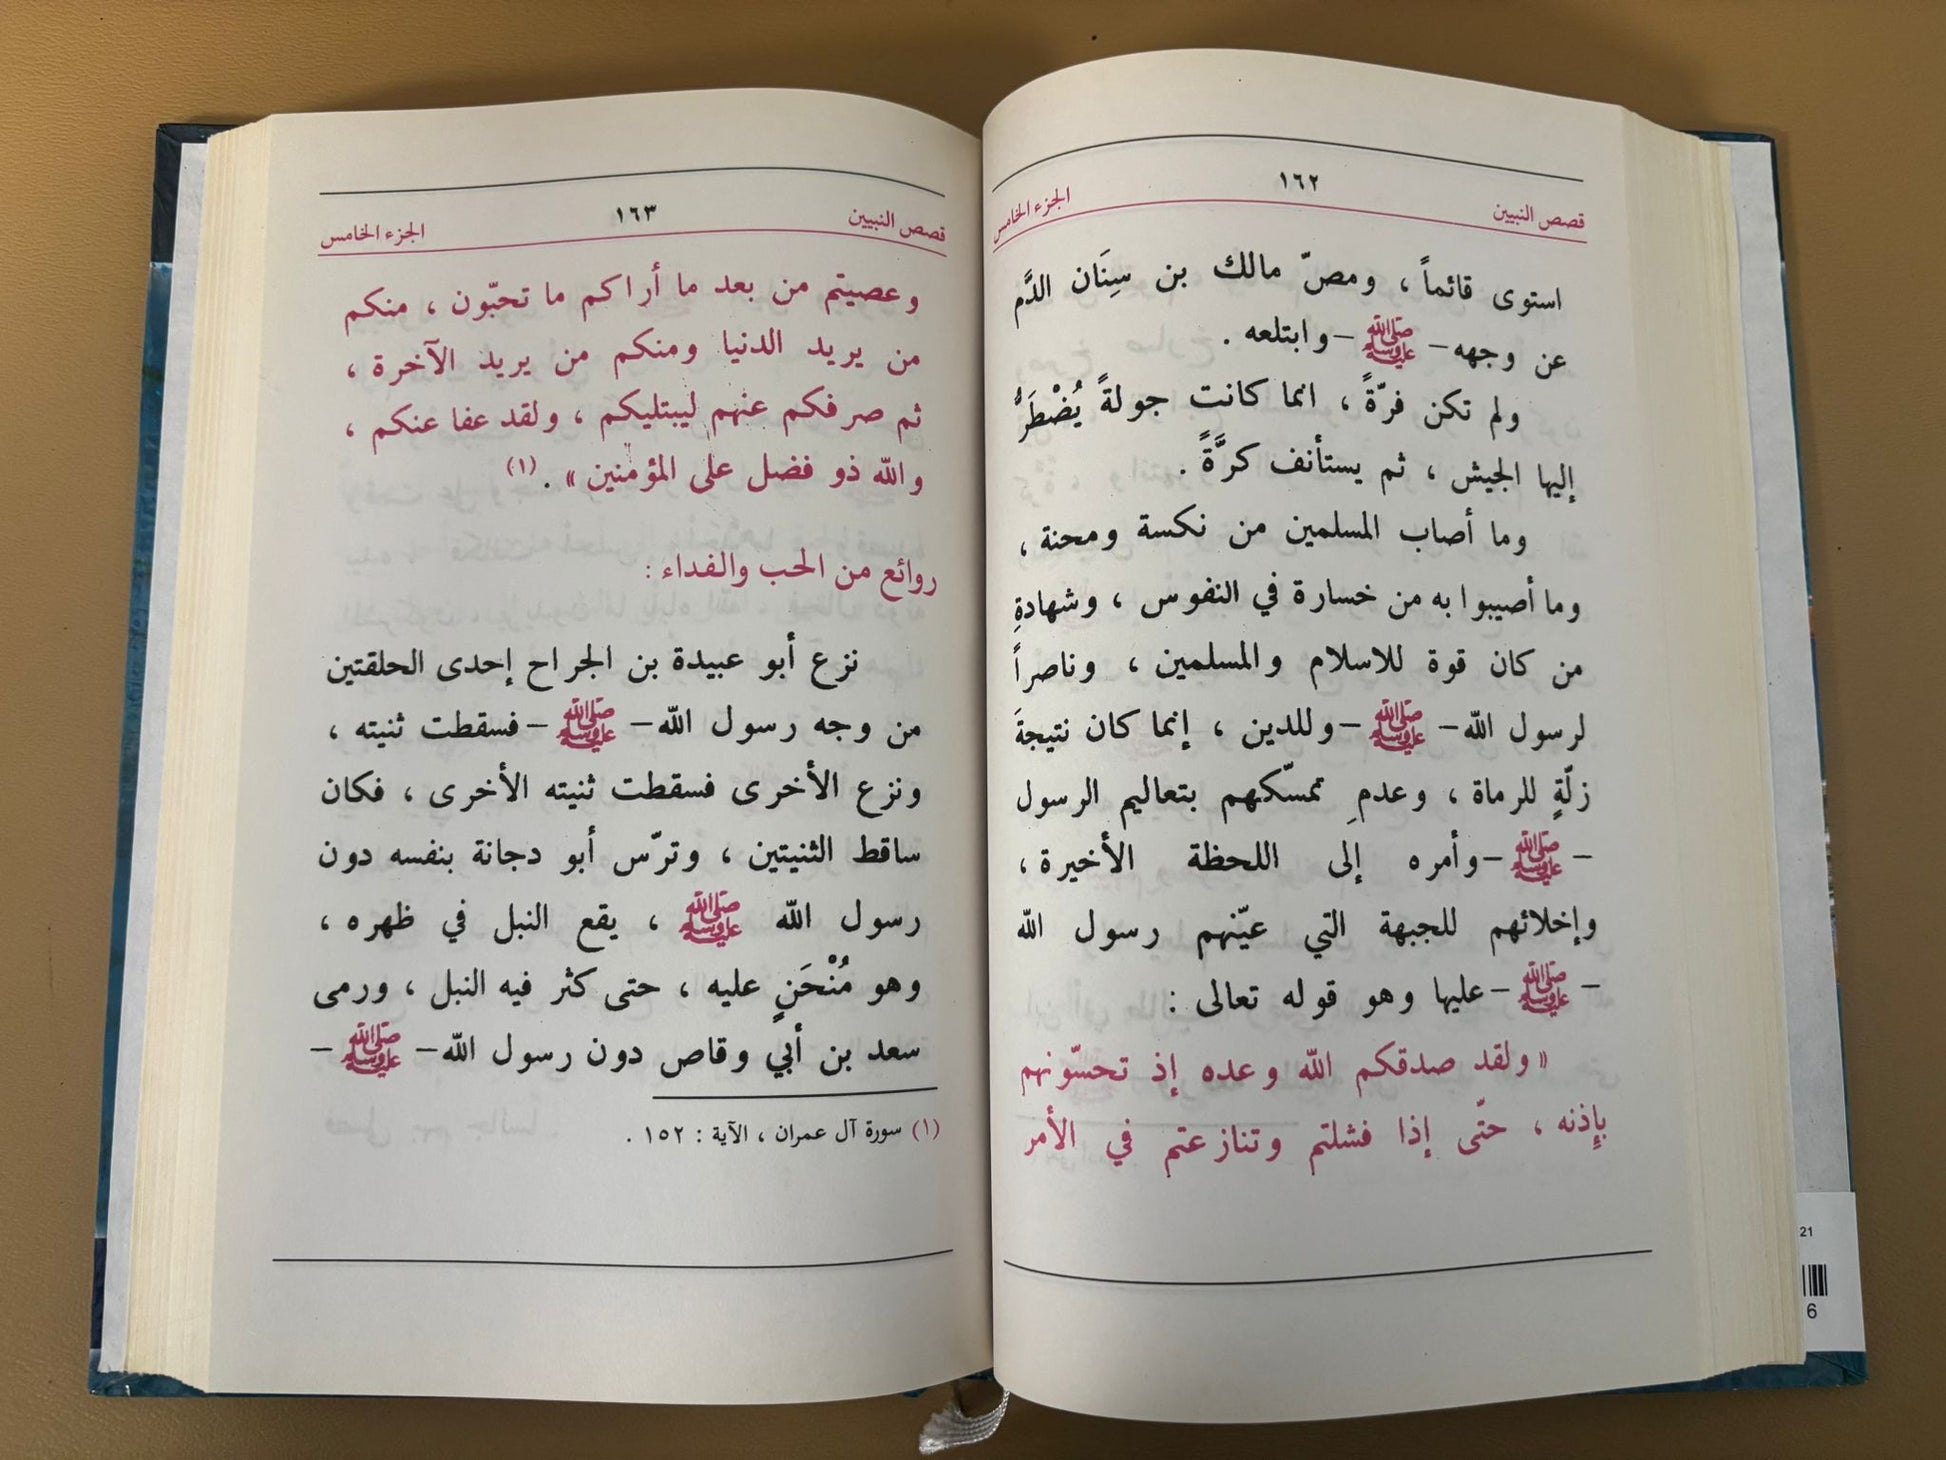 قصص النبيين ١٦٢ الجزء الخامس
استوى قائماً ، ومصّ مالك بن سِنَان الدَّم
عن وجهه – ﷺ – وابتلعه .
ولم تكن فرّةً ، انما كانت جولةً يُضْطَرُّ
إليها الجيش ، ثم يستأنف كرَّةً .
وما أصاب المسلمين من نكسة ومحنة ،
وما أصيبوا به من خسارة في النفوس ، وشهادةِ
من كان قوة للاسلام والمسلمين ، وناصراً
لرسول الله – ﷺ – وللدين ، إنما كان نتيجةَ
زلّةٍ للرماة ، وعدمِ تمسّكهم بتعاليم الرسول
– ﷺ – وأمره إلى اللحظة الأخيرة ،
وإخلائهم للجبهة التي عيّنهم رسول الله
– ﷺ – عليها وهو قوله تعالى :
« ولقد صدقكم الله وعده إذ تحسّونهم
بإذنه ، حتّى إذا فشلتم وتنازعتم في الأمر
قصص النبيين ١٦٣ الجزء الخامس
وعصيتم من بعد ما أراكم ما تحبّون ، منكم
من يريد الدنيا ومنكم من يريد الآخرة ،
ثم صرفكم عنهم ليبتليكم ، ولقد عفا عنكم ،
والله ذو فضل على المؤمنين » . (١)
روائع من الحب والفداء :
نزع أبو عبيدة بن الجراح إحدى الحلقتين
من وجه رسول الله – ﷺ – فسقطت ثنيته ،
ونزع الأخرى فسقطت ثنيته الأخرى ، فكان
ساقط الثنيتين ، وترّس أبو دجانة بنفسه دون
رسول الله ﷺ ، يقع النبل في ظهره ،
وهو مُنْحَنٍ عليه ، حتى كثر فيه النبل ، ورمى
سعد بن أبي وقاص دون رسول الله – ﷺ –
(١) سورة آل عمران ، الآية : ١٥٢ .
21
6